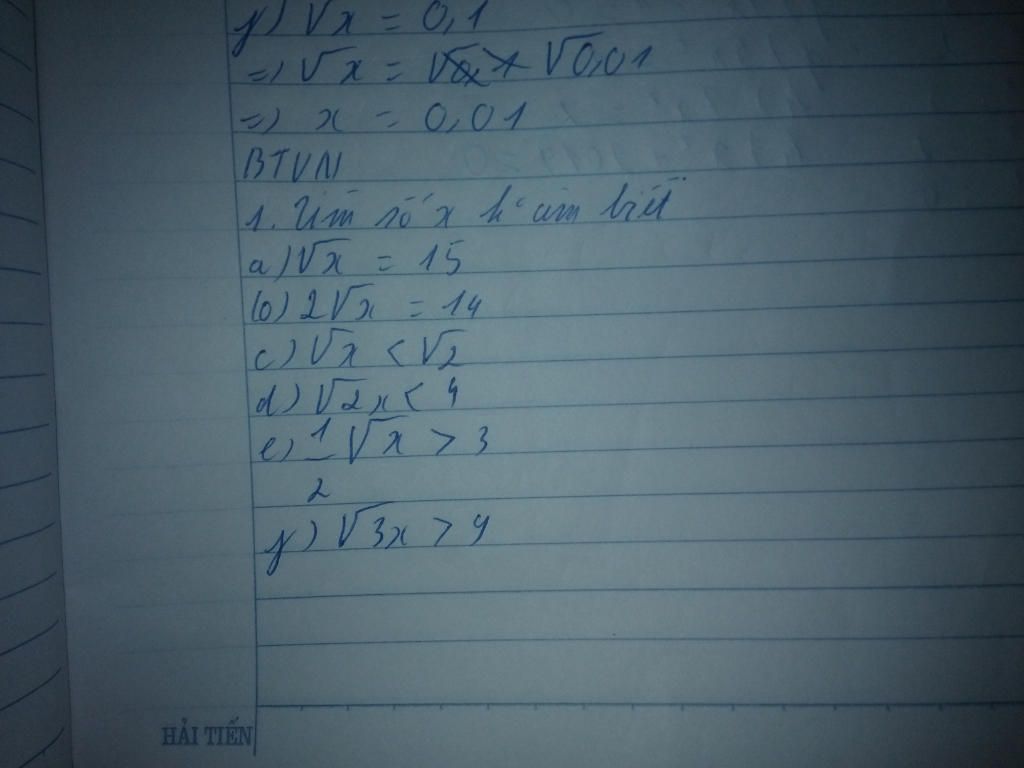 f) √x = 0,1
=> √x = √0,01
=> x = 0,01
BTVN
1. Tìm số x k° âm biết
a) √x = 15
b) 2√x = 14
c) √x < √2
d) √2x < 4
e) 1/2 √x > 3
f) √3x > 9
HẢI TIẾN